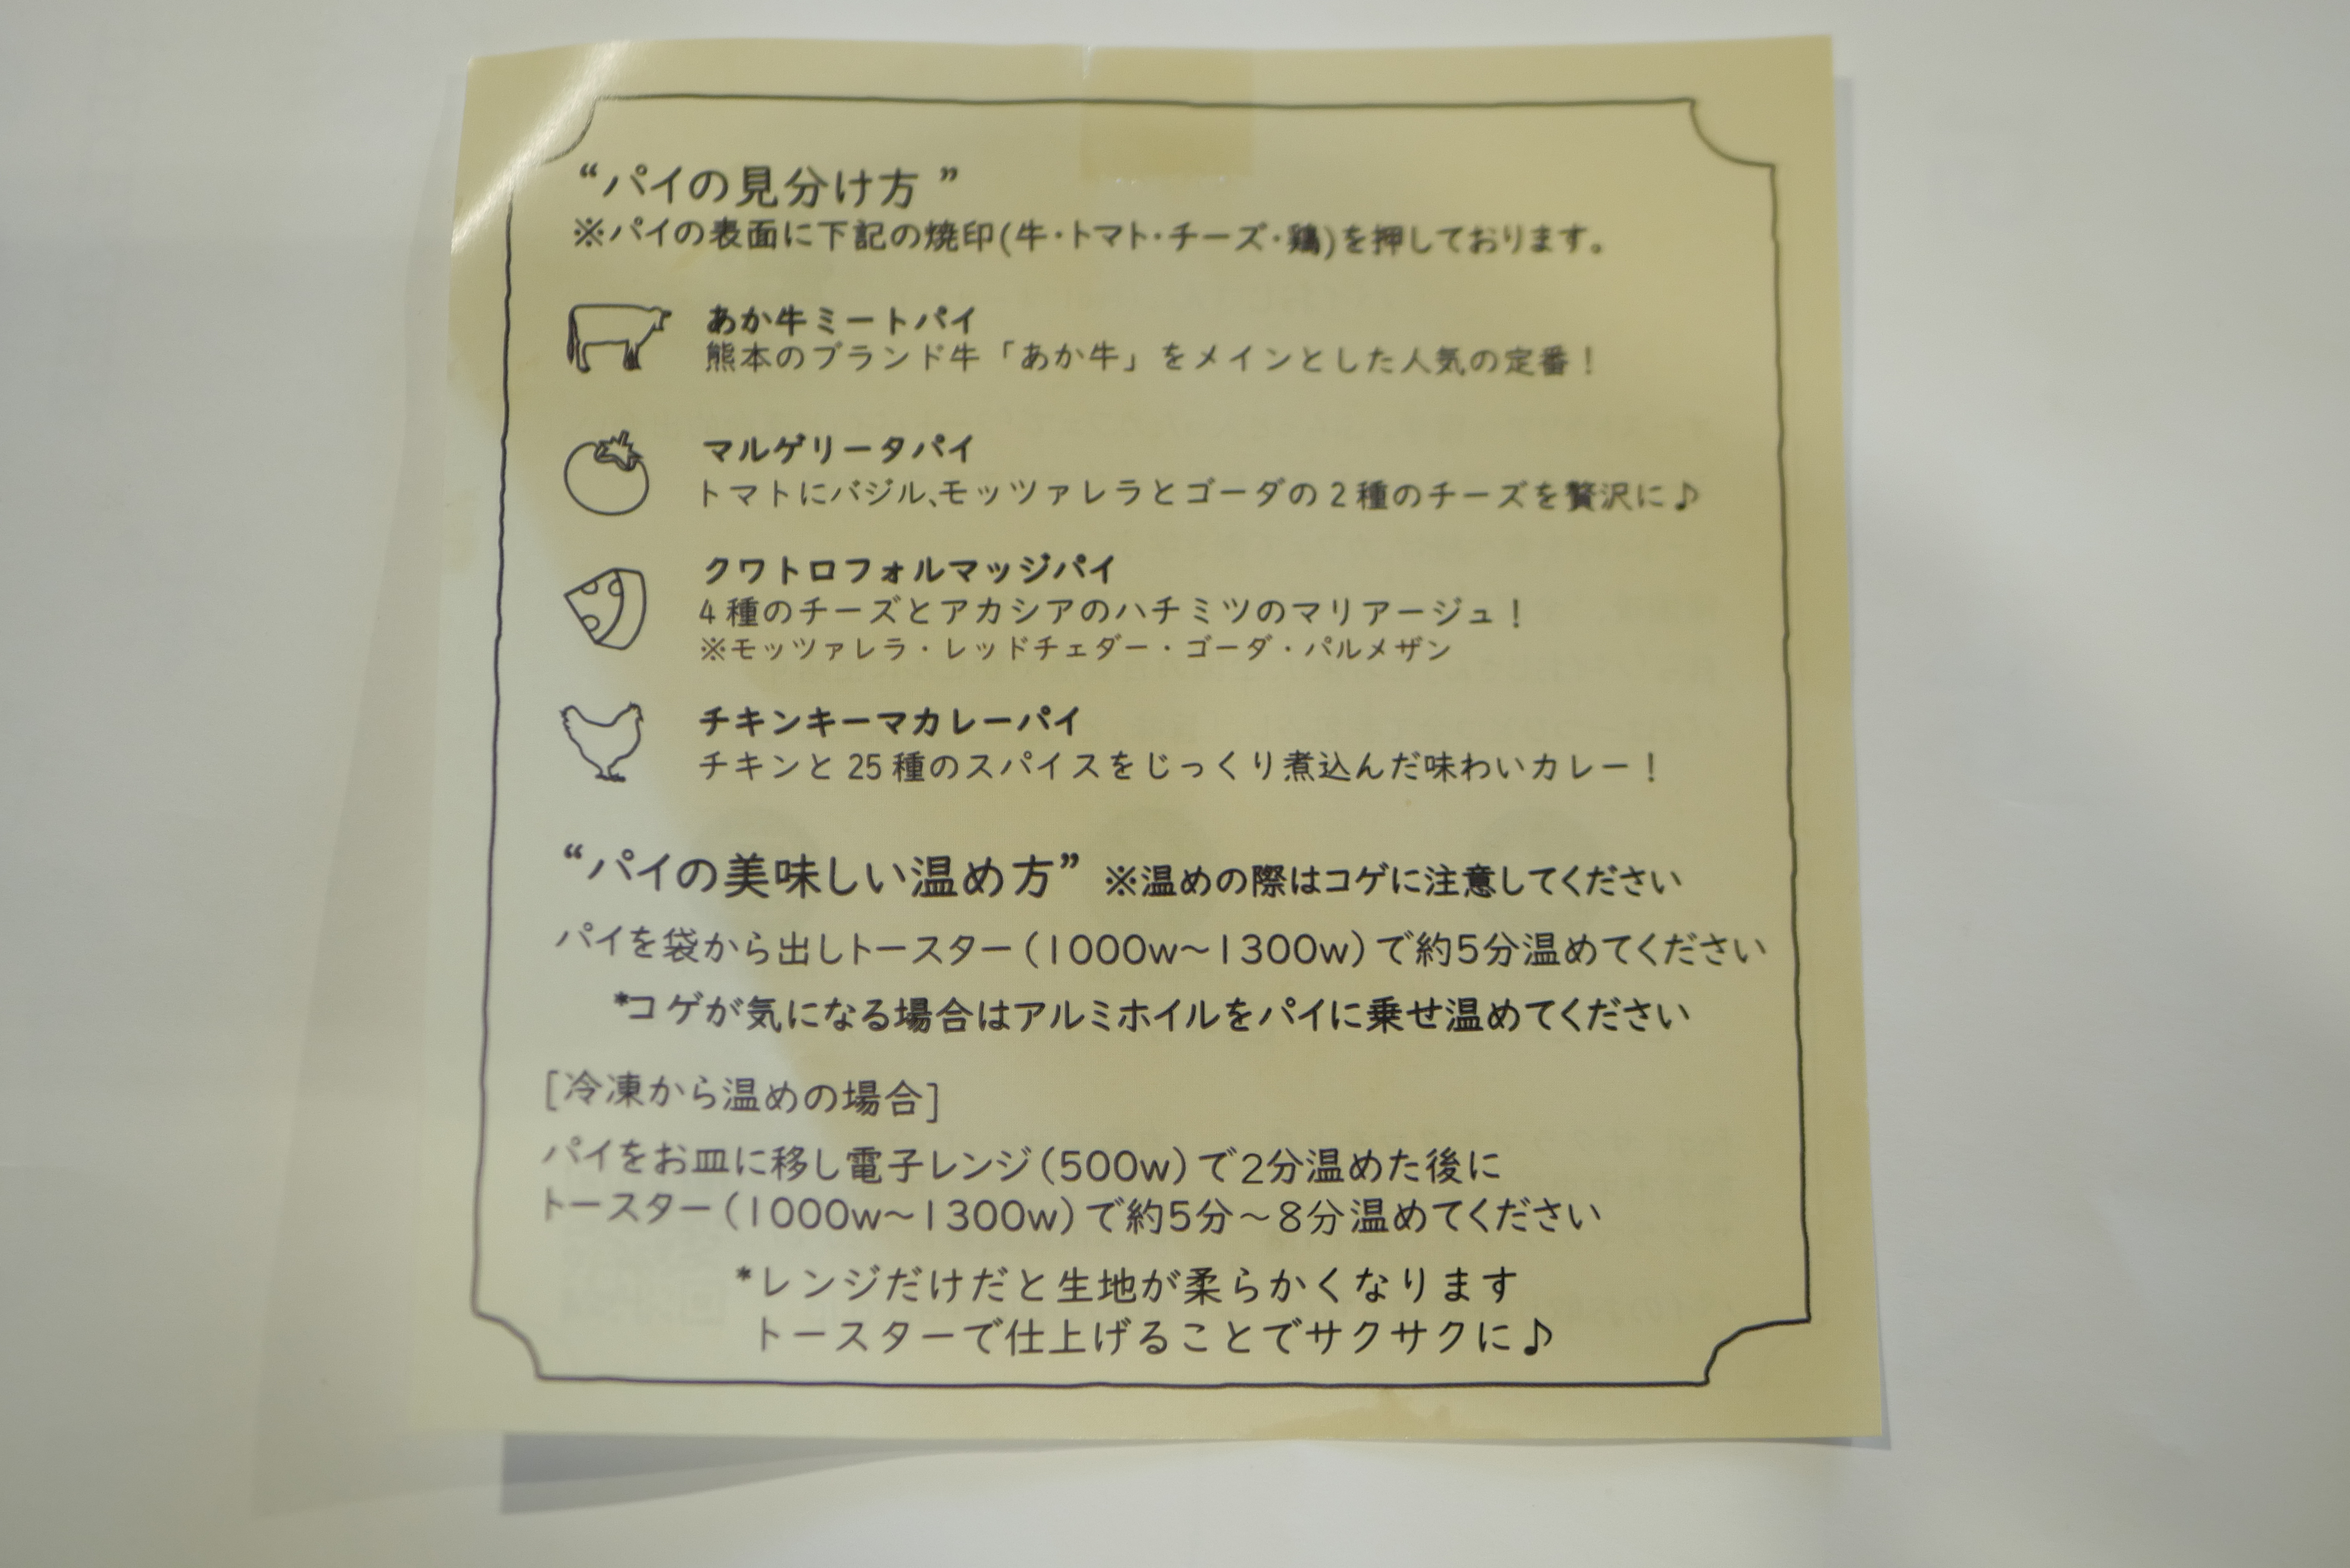 “パイの見分け方”
※パイの表面に下記の焼印(牛・トマト・チーズ・鶏)を押しております。
あか牛ミートパイ
熊本のブランド牛「あか牛」をメインとした人気の定番！
マルゲリータパイ
トマトにバジル、モッツァレラとゴーダの2種のチーズを贅沢に♪
クワトロフォルマッジパイ
4種のチーズとアカシアのハチミツのマリアージュ！
※モッツァレラ・レッドチェダー・ゴーダ・パルメザン
チキンキーマカレーパイ
チキンと25種のスパイスをじっくり煮込んだ味わいカレー！
“パイの美味しい温め方” ※温めの際はコゲに注意してください
パイを袋から出しトースター(1000w～1300w)で約5分温めてください
*コゲが気になる場合はアルミホイルをパイに乗せ温めてください
[冷凍から温めの場合]
パイをお皿に移し電子レンジ(500w)で2分温めた後に
トースター(1000w～1300w)で約5分～8分温めてください
*レンジだけだと生地が柔らかくなります
トースターで仕上げることでサクサクに♪